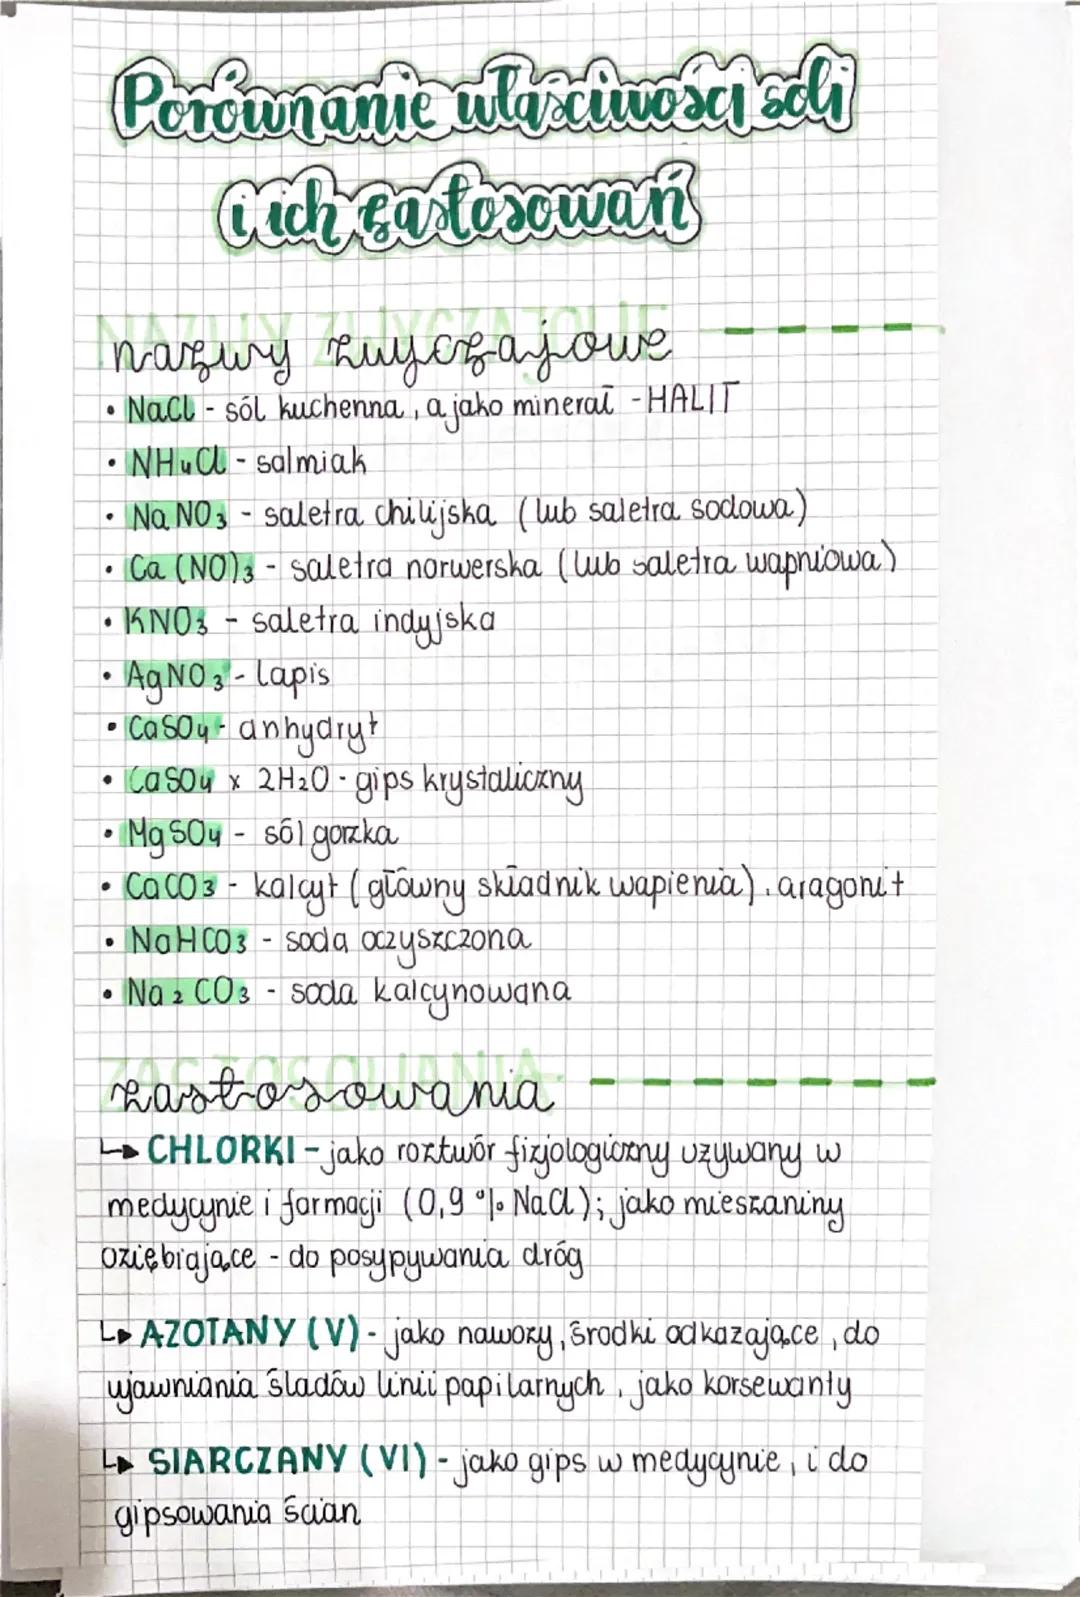 Porównanie właściwości soli
i ich zastosowań
NAZWY ZWYCZAJOWE
nazwy zwyczajowe
• NaCl - sól kuchenna, a jako minerał - HALIT
• NH4Cl - salmiak
• NaNO3 - saletra chilijska (lub saletra sodowa)
• Ca(NO)3 - saletra norwerska (lub saletra wapniowa)
• KNO3 - saletra indyjska
• AgNO3 - lapis
• CaSO4 - anhydryt
• CaSO4 x 2H2O - gips krystaliczny
• MgSO4 - sól gorzka
• CaCO3 - kalcyt (główny składnik wapienia), aragonit
• NaHCO3 - soda oczyszczona
• Na2CO3 - soda kalcynowana
ZASTOSOWANIA
zastosowania
↳ CHLORKI - jako roztwór fizjologiczny używany w
medycynie i farmacji (0,9% NaCl); jako mieszaniny
oziębiające - do posypywania dróg
↳ AZOTANY (V) - jako nawozy, środki odkażające, do
ujawniania śladów linii papilarnych, jako korsewanty
↳ SIARCZANY (VI) - jako gips w medycynie, i do
gipsowania ścian